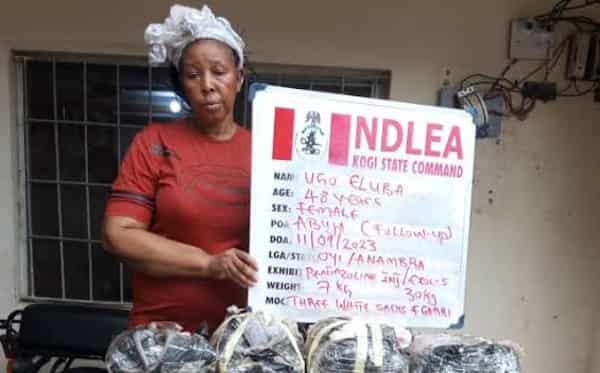 NDLEA
KOGI STATE COMMAND
NAM UGO ELUBA
AGE: 48 YEARS
SEX: FEMALE
POA ABUJA (Follow-up)
DOA: 11/09/2023
LGA/STAT OYI/ANAMBRA
EXHIBI PENTAZOCINE INJ/EXOL-5
WEIGHT 7kg 30kg
MOC: THREE WHITE SACKS of GARRI